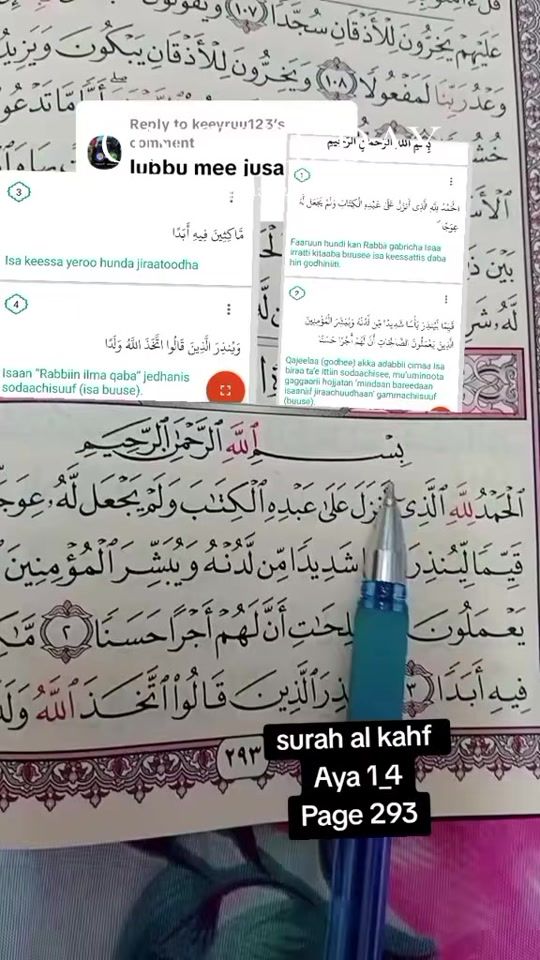 عَلَيْهِمْ يَخِرُّونَ لِلْأَذْقَانِ سُجَّدًا ١٠٧ وَيَقُولُونَ
وَعْدُ رَبِّنَا لَمَفْعُولًا ١٠٨ وَيَخِرُّونَ لِلْأَذْقَانِ يَبْكُونَ وَيَزِيدُ
أَيًّا مَّا تَدْعُو
Reply to keeyruu123's
comment
lubbu mee jusa
3
مَّاكِثِينَ فِيهِ أَبَدًا
Isa keessa yeroo hunda jiraatoodha
4
وَيُنذِرَ الَّذِينَ قَالُوا اتَّخَذَ اللَّهُ وَلَدًا
Isaan "Rabbiin ilma qaba" jedhanis
sodaachisuuf (isa buuse).
بِسْمِ اللَّهِ الرَّحْمَٰنِ الرَّحِيمِ
1
الْحَمْدُ لِلَّهِ الَّذِي أَنزَلَ عَلَىٰ عَبْدِهِ الْكِتَابَ وَلَمْ يَجْعَل لَّهُ
عِوَجًا
Faaruun hundi kan Rabba gabricha Isaa
irratti kitaaba buusee isa keessattis daba
hin godhiniiti.
2
قَيِّمًا لِّيُنذِرَ بَأْسًا شَدِيدًا مِّن لَّدُنْهُ وَيُبَشِّرَ الْمُؤْمِنِينَ
الَّذِينَ يَعْمَلُونَ الصَّالِحَاتِ أَنَّ لَهُمْ أَجْرًا حَسَنًا
Qajeelaa (godhee) akka adabbii cimaa Isa
biraa ta'e ittiin sodaachisee, mu'uminoota
gaggaarii hojjatan 'mindaan bareedaan
isaaniif jiraachuudhaan' gammachiisuuf
(buuse).
بِسْمِ ٱللَّهِ ٱلرَّحْمَٰنِ ٱلرَّحِيمِ
ٱلْحَمْدُ لِلَّهِ ٱلَّذِي أَنزَلَ عَلَىٰ عَبْدِهِ ٱلْكِتَٰبَ وَلَمْ يَجْعَل لَّهُۥ عِوَجَ
قَيِّمًا لِّيُنذِرَ شَدِيدًا مِّن لَّدُنْهُ وَيُبَشِّرَ ٱلْمُؤْمِنِينَ
يَعْمَلُونَ لِحَٰتِ أَنَّ لَهُمْ أَجْرًا حَسَنًا ٢ مَّٰكِ
فِيهِ أَبَدًا ٣ ذِرَ ٱلَّذِينَ قَالُوا۟ ٱتَّخَذَ ٱللَّهُ وَلَدً
٢٩٣
surah al kahf
Aya 1_4
Page 293